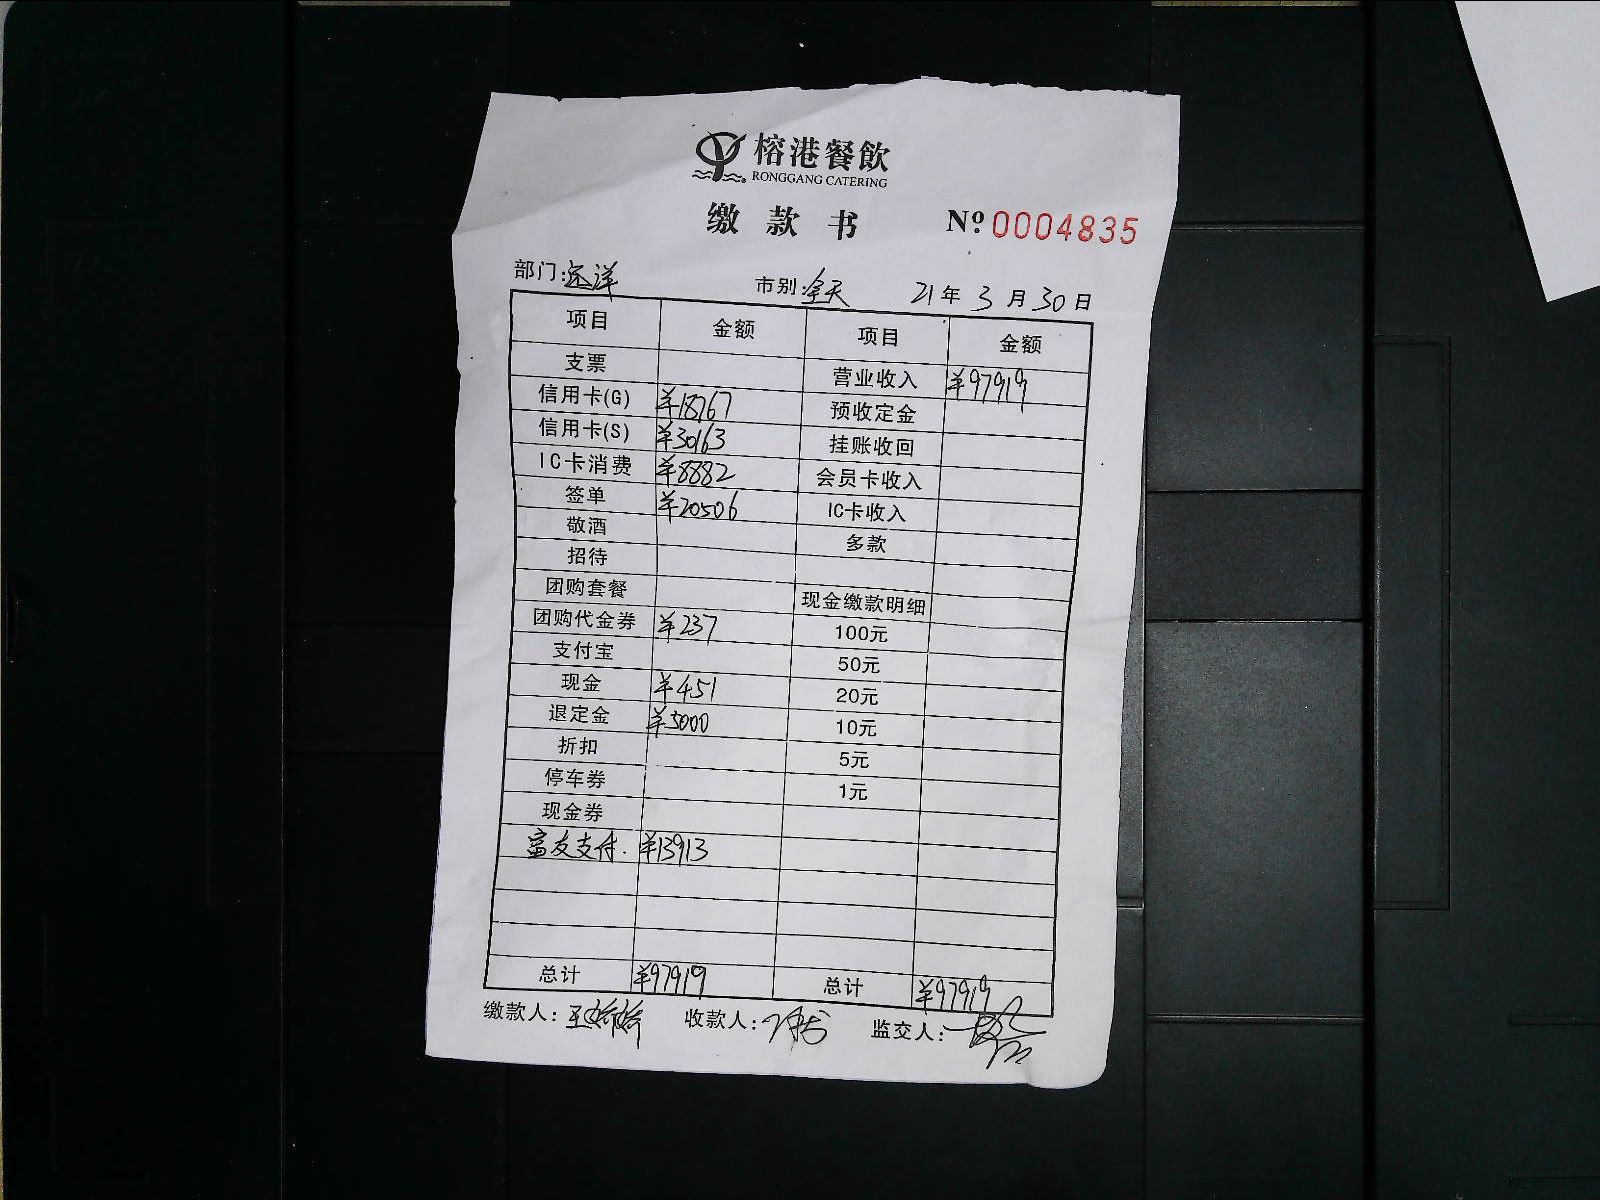 榕港餐飲
RONGGANG CATERING
缴款书 Nº 0004835
部门:远洋 市别:全天 21年3月30日
项目 金额 项目 金额
支票 营业收入 ¥97919
信用卡(G) ¥18767 预收定金
信用卡(S) ¥30163 挂账收回
IC卡消费 ¥8882 会员卡收入
签单 ¥20506 IC卡收入
敬酒 多款
招待
团购套餐 现金缴款明细
团购代金券 ¥237 100元
支付宝 50元
现金 ¥451 20元
退定金 ¥5000 10元
折扣 5元
停车券 1元
现金券
富友支付 ¥13913
总计 ¥97919 总计 ¥97919
缴款人: 收款人: 监交人: